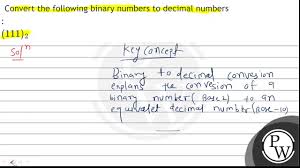 Convert the following binary numbers to decimal numbers
:
(111)₂
Solⁿ
Key concept
Binary to decimal convesion
explans the convesion of a
binary number (Base 2) to an
equivalet decimal number (Base-10)
P
W